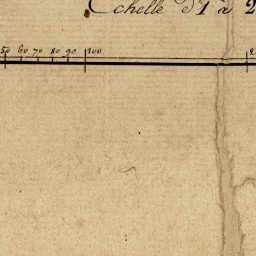 Echelle d'1 à 2
50 60 70 80 90 100 2